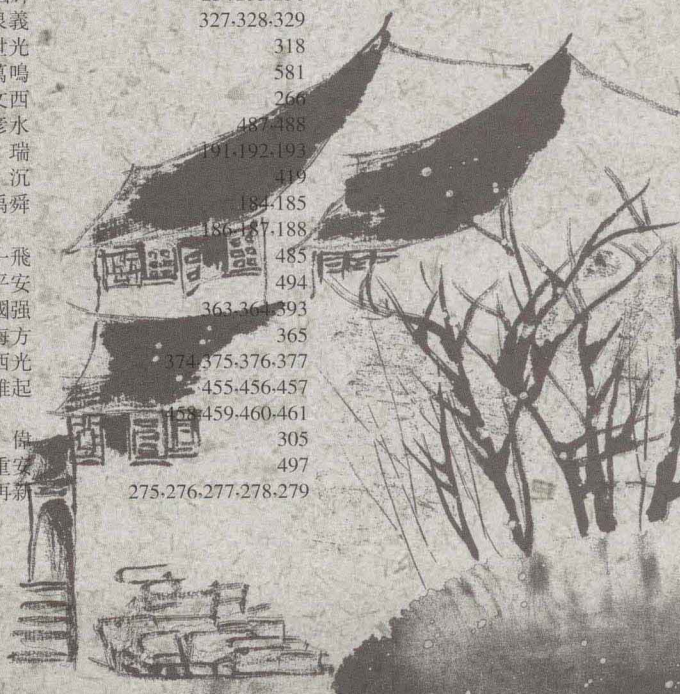 義 327·328·329
光 318
鳴 581
西 266
水 487·488
瑞 191·192·193
沉 419
舜 184·185
186·187·188
飛 485
安 494
國强 363·364·393
海方 365
西光 374·375·376·377
起 455·456·457
458·459·460·461
偉 305
重安 497
再新 275·276·277·278·279